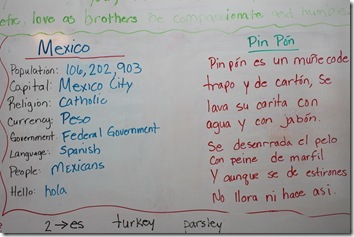 etic, love as brothers be compassionate and humble
Mexico
Population: 106,202,903
Capital: Mexico City
Religion: Catholic
Currency: Peso
Government: Federal Government
Language: Spanish
People: Mexicans
Hello: hola
Pin Pón
Pin pón es un muñe code
trapo y de cartón, se
lava su carita con
agua y con jabón.
Se desenrada el pelo
con peine de marfil
Y aunque se de estirones
No llora ni hace asi.
2→es turkey parsley